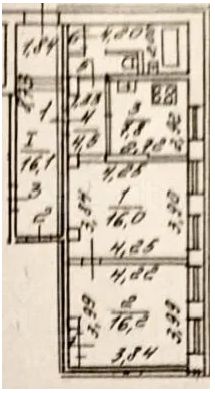 6
4,20
1,84
5
1,33
4
4,6
3
7,8
2,92
1
I
16,1
3
2
4,25
1
16,0
3,84
3,80
4,25
4,22
2
16,2
3,99
3,99
3,84